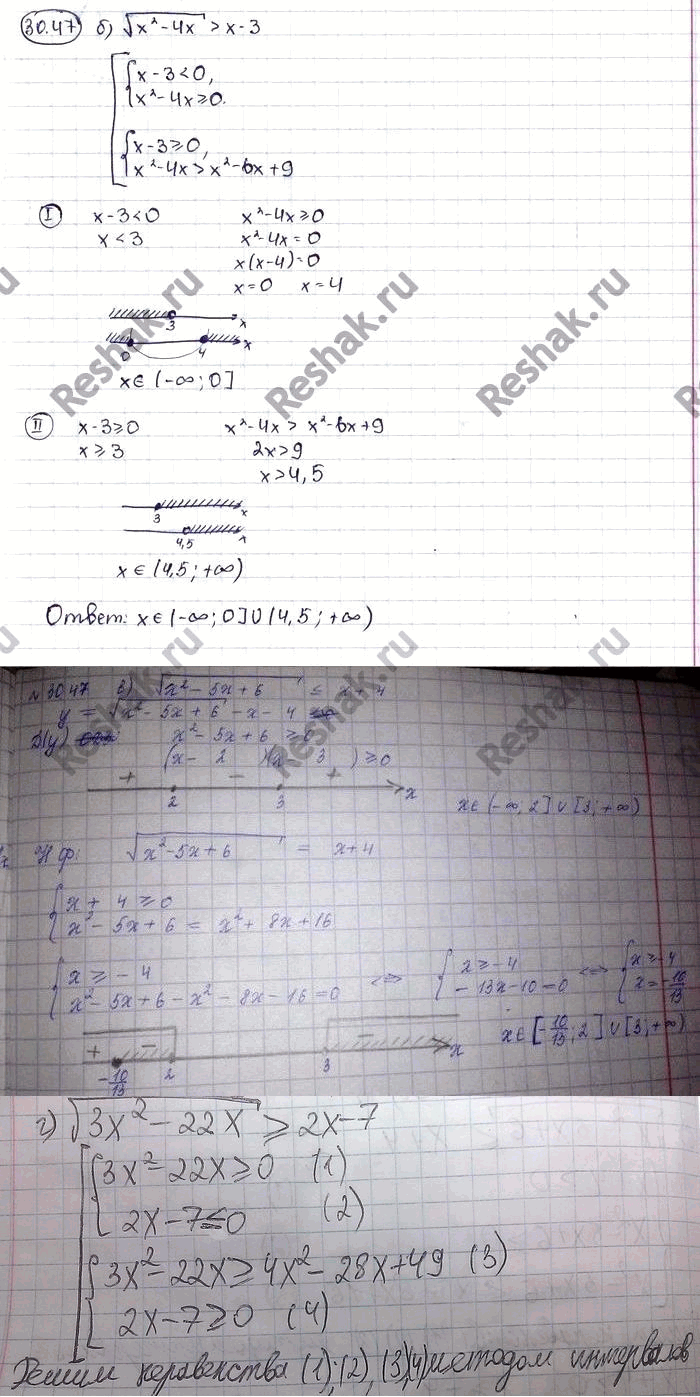 30.47 б) √x²-4x > x-3
x-3<0,
x²-4x≥0.
x-3≥0,
x²-4x>x²-6x+9
I x-3<0 x²-4x≥0
x<3 x²-4x=0
x(x-4)=0
x=0 x=4
3 x
0 4 x
x∈(-∞;0]
II x-3≥0 x²-4x>x²-6x+9
x≥3 2x>9
x>4,5
3 x
4,5 x
x∈(4,5;+∞)
Ответ: x∈(-∞;0]∪(4,5;+∞)
Reshak.ru Reshak.ru Reshak.ru
№30.47 в) √x²-5x+6 ≤ x+4
y=√x²-5x+6 -x-4
D(y) x²-5x+6≥0
(x-2)(x-3)≥0
+ - +
2 3 x
x∈(-∞;2]∪[3;+∞)
Н.ф: √x²-5x+6 = x+4
x+4≥0
x²-5x+6=x²+8x+16
x≥-4
x²-5x+6-x²-8x-16=0
⇔ x≥-4
-13x-10=0
⇔ x≥-4
x=-10/13
+ - -
-10/13 2 3 x
x∈[-10/13;2]∪[3;+∞)
г) √3x²-22x ≥ 2x-7
3x²-22x≥0 (1)
2x-7≤0 (2)
3x²-22x≥4x²-28x+49 (3)
2x-7≥0 (4)
Решим неравенства (1),(2),(3),(4) методом интервалов